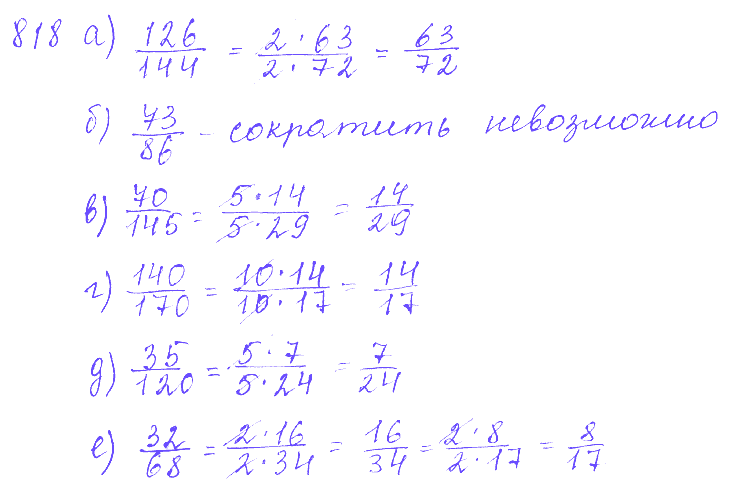 818 а) 126/144 = 2·63/2·72 = 63/72
б) 73/86 - сократить невозможно
в) 70/145 = 5·14/5·29 = 14/29
г) 140/170 = 10·14/10·17 = 14/17
д) 35/120 = 5·7/5·24 = 7/24
е) 32/68 = 2·16/2·34 = 16/34 = 2·8/2·17 = 8/17